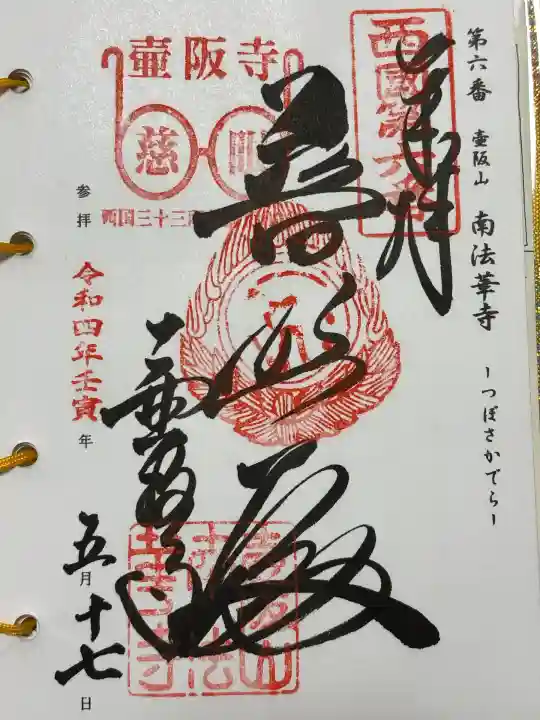 第六番 壺阪山 南法華寺 -つぼさかでら-
奉拝
西國第六番
普照殿
壷阪寺
慈眼
西国三十三所
参拝 令和四年壬寅年
五月十七日